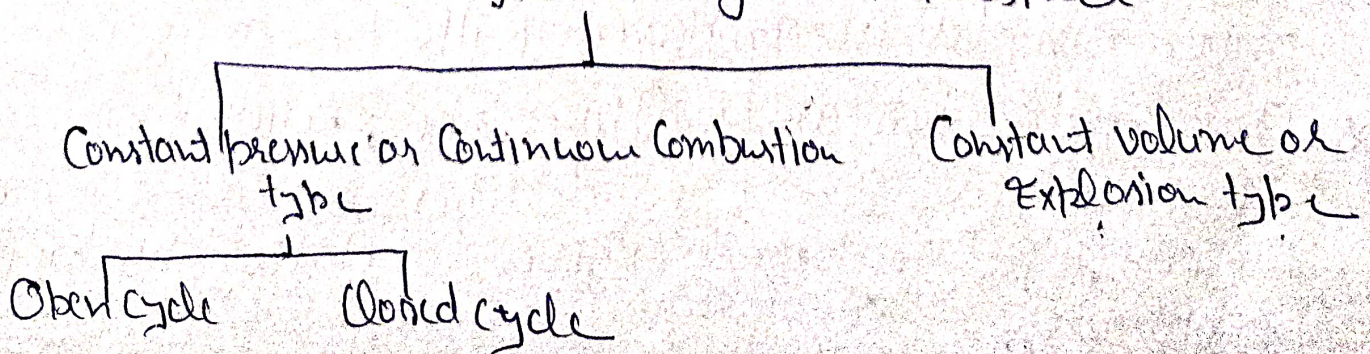 Constant pressure or Continuous Combustion
type
Constant volume or
Explosion type
Open cycle
Closed cycle